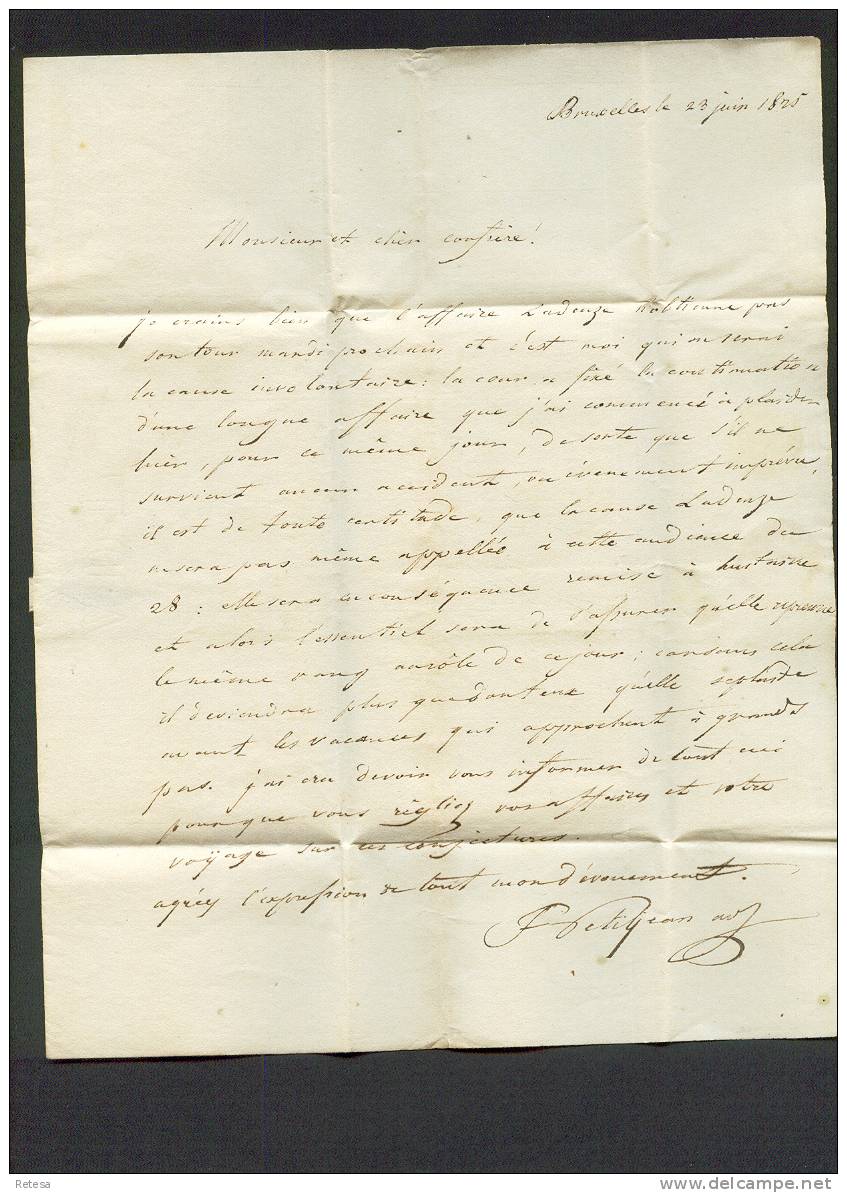 Bruxelles le 23 juin 1825
Monsieur et cher confrère!
je crains bien que l'affaire Ladeuze n'obtienne pas
son tour mardi prochain et c'est moi qui en serai
la cause involontaire: la cour a fixé la continuation
d'une longue affaire que j'ai commencé à plaider
hier, pour ce même jour, de sorte que s'il ne
survient aucun accident, ou évènement imprévu,
il est de toute certitude, que la cause Ladeuze
ne sera pas même appellée à cette audience du
28: elle sera en conséquence remise à huitaine
et alors l'essentiel sera de s'assurer qu'elle reprenne
le même rang au rôle de ce jour; car sans cela
il deviendra plus que douteux qu'elle se plaide
avant les vacances qui approchent à grands
pas. j'ai cru devoir vous informer de tout ceci
pour que vous régliez vos affaires et votre
voyage sur ces conjectures.
agréez l'expression de tout mon dévouement.
F Petitjean av
Retesa
www.delcampe.net